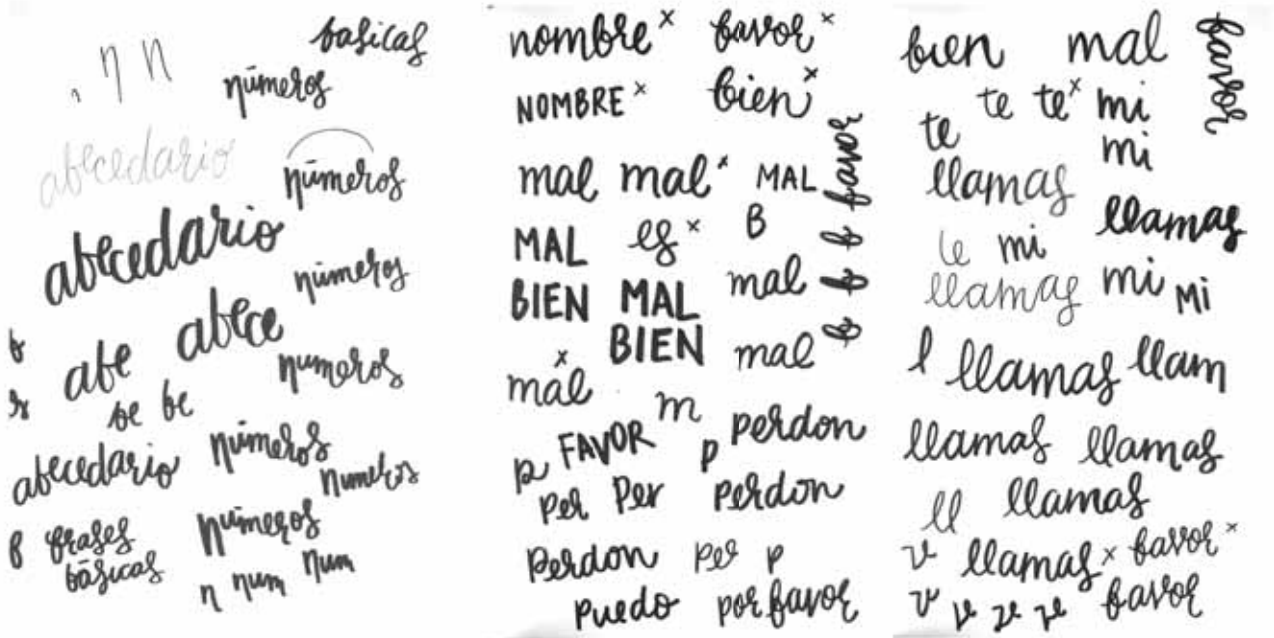 , n n
básicas
números
abecedario
números
abecedario
números
b
abe abece
numeros
s
be be
abecedario números
numeros
b frases
básicas
números
n num num
nombre x favor x
NOMBRE x bien x
mal mal x MAL
favor
MAL es x B
b b b
BIEN MAL mal
BIEN mal
x
mal
m
p FAVOR p perdon
per Per perdon
perdon per p
puedo por favor
bien mal
favor
te te x mi
te
mi
llamas
llamas
te mi
llamas mi mi
l llamas llam
llamas llamas
ll llamas
v llamas x favor x
v ve ve ve favor